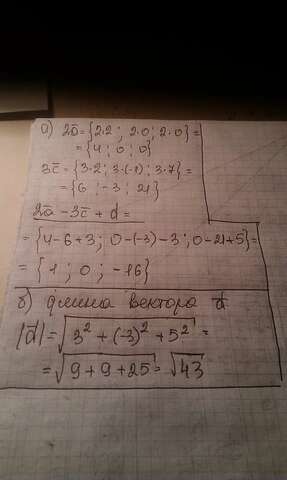 а) 2ā = {2·2 ; 2·0 ; 2·0} =
= {4 ; 0 ; 0}
3c̄ = {3·2 ; 3·(-1) ; 3·7} =
= {6 ; -3 ; 21}
2ā - 3c̄ + d =
= {4-6+3 ; 0-(-3)-3 ; 0-21+5} =
= {1 ; 0 ; -16}
б) длина вектора d̄
|d̄| = √3² + (-3)² + 5² =
= √9 + 9 + 25 = √43